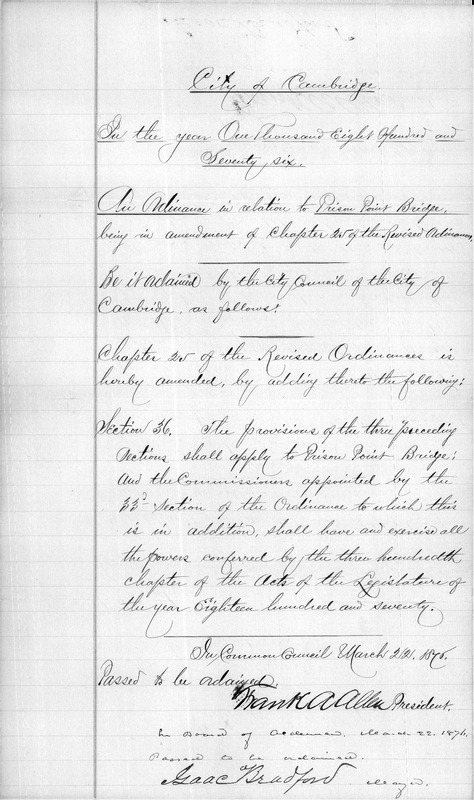 City of Cambridge.
In the year One Thousand Eight Hundred and
Seventy six.
An Ordinance in relation to Prison Point Bridge,
being in amendment of Chapter 25 of the Revised Ordinances
Be it ordained by the City Council of the City of
Cambridge, as follows:
Chapter 25 of the Revised Ordinances is
hereby amended, by adding thereto the following:
Section 36. The provisions of the three preceding
sections shall apply to Prison Point Bridge;
and the Commissioners appointed by the
33d Section of the Ordinance to which this
is in addition, shall have and exercise all
the powers conferred by the three hundredth
chapter of the Acts of the Legislature of
the year Eighteen hundred and seventy.
In Common Council March 1876.
Passed to be ordained
Frank A Allen President.
In Board of Aldermen, March 22, 1876,
Passed to be ordained.
Isaac Bradford Mayor.